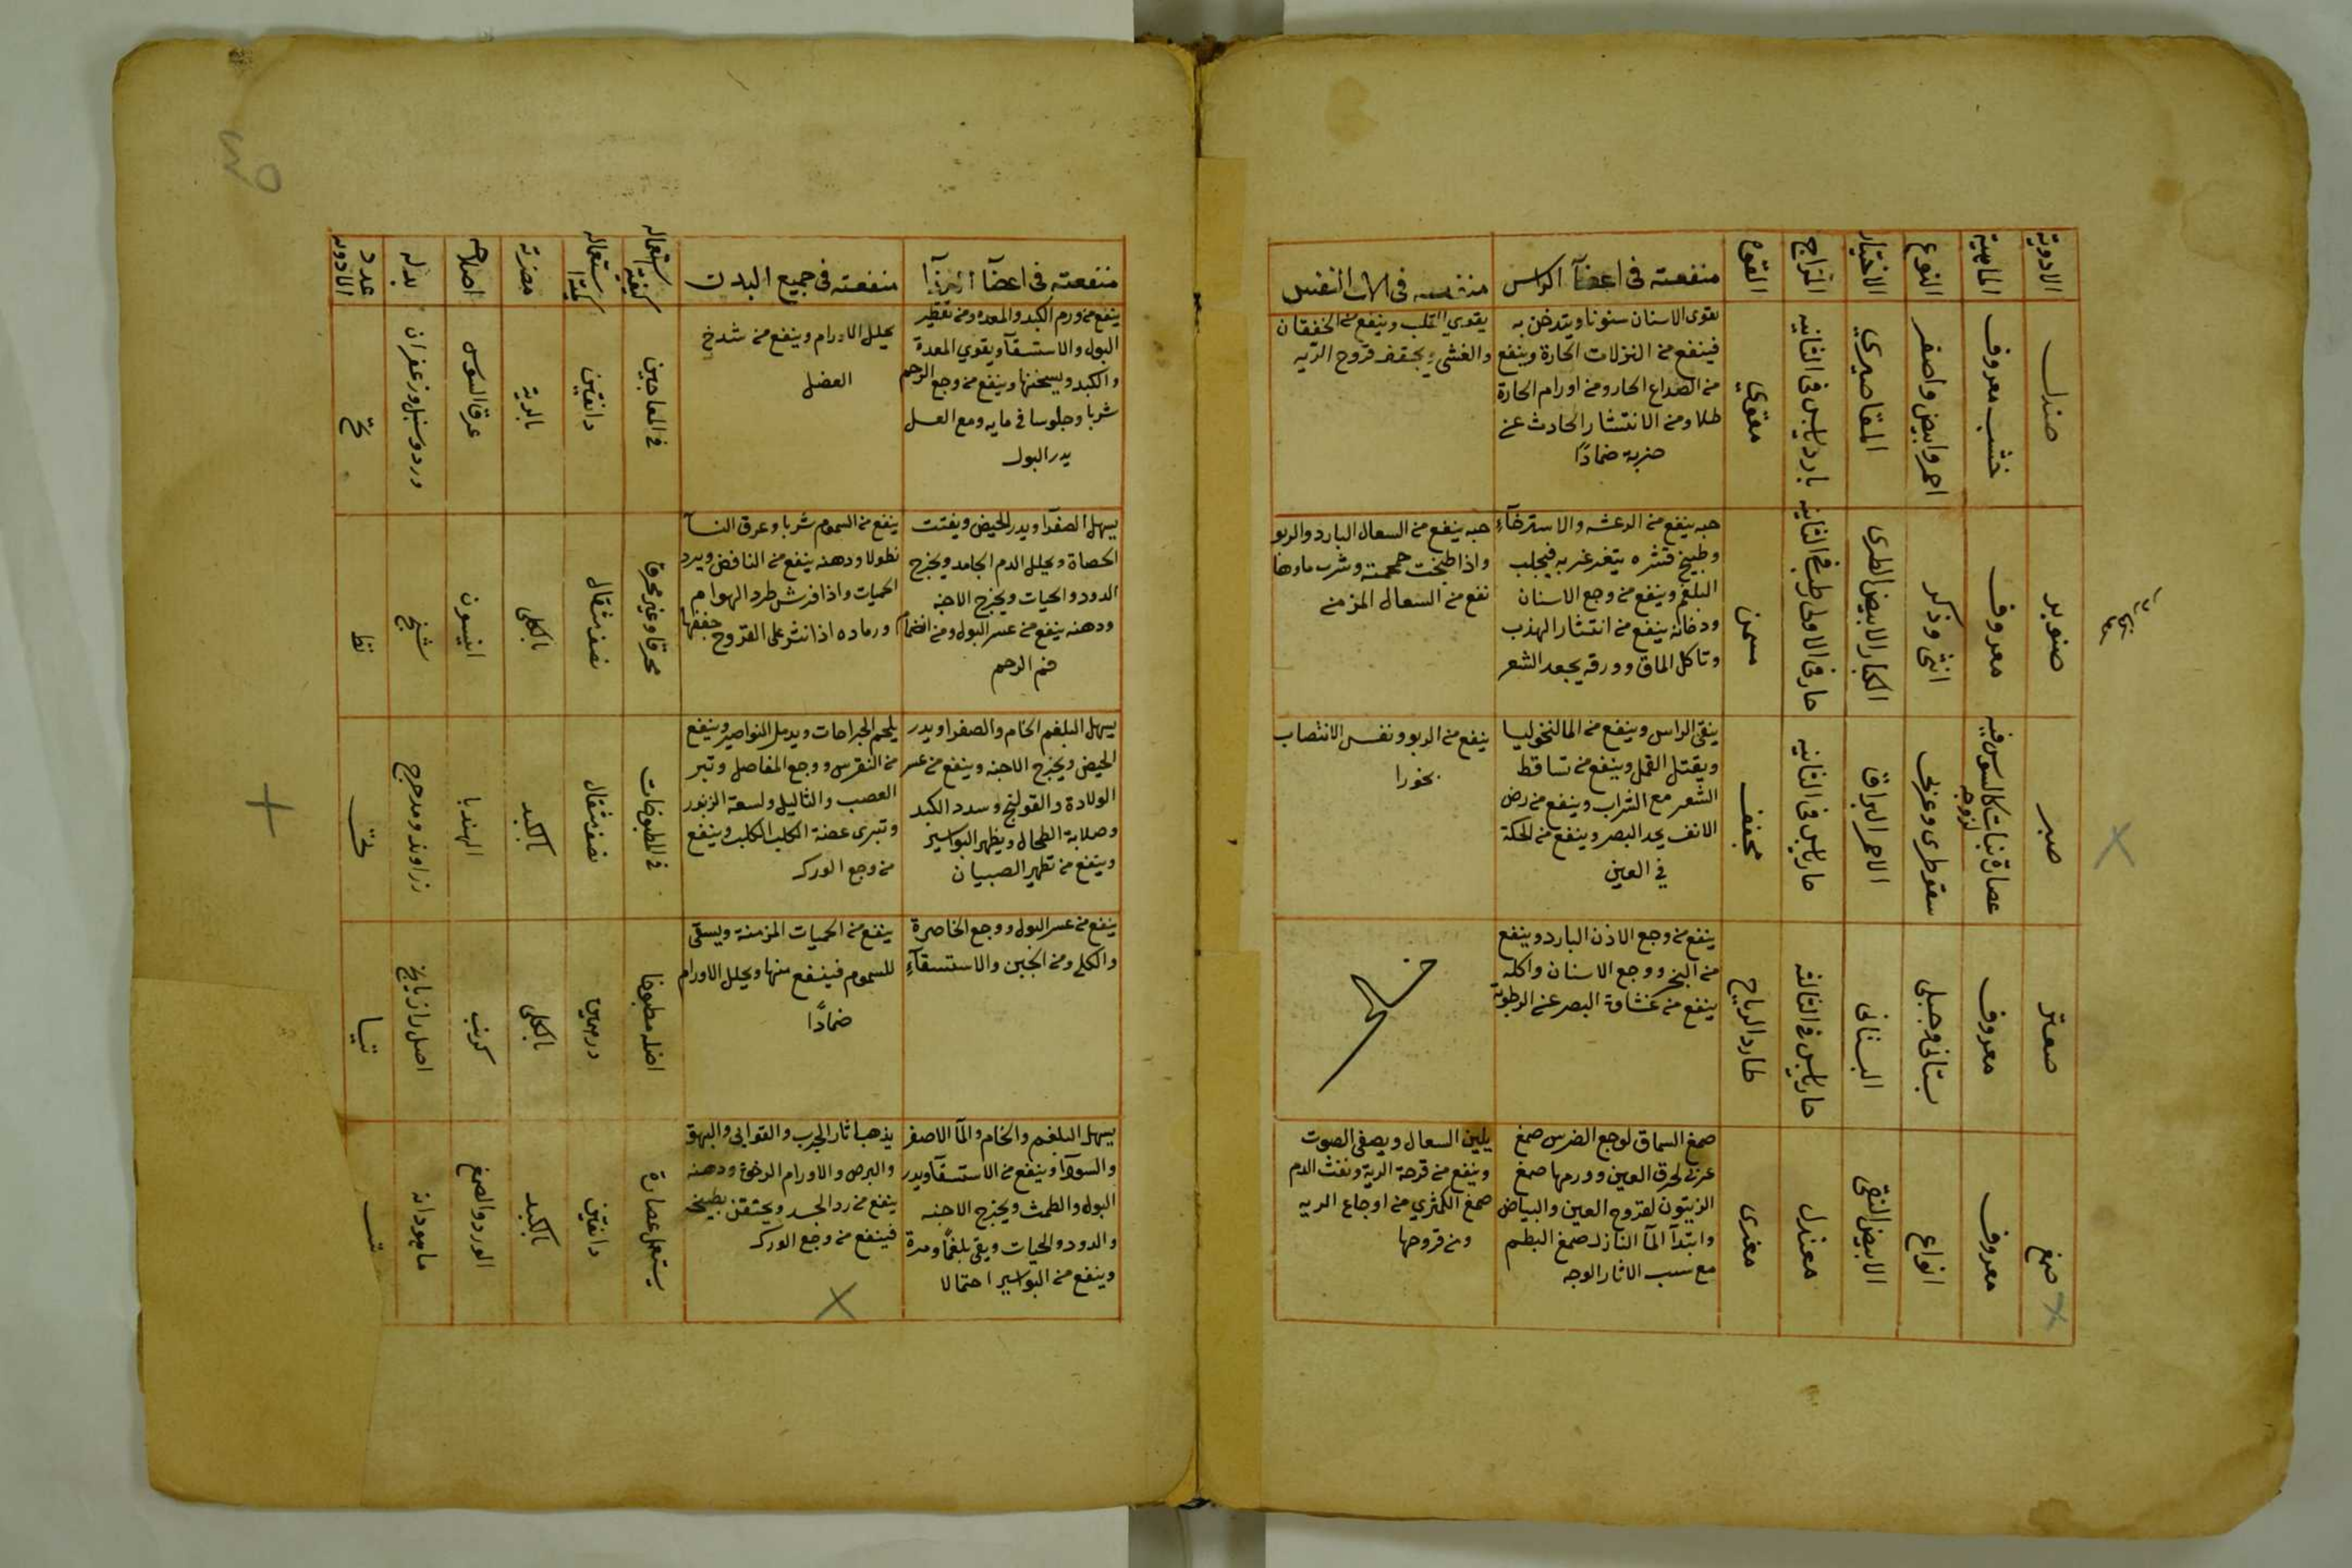 الادوية
الماهية
النوع
الاختيار
المزاج
القوة
منفعته في اعضآ الراس
منفعته في الات النفس
صندل
خشب معروف
احمر وابيض واصفر
المقاصيري
بارد يابس في الثانيه
مقوي
يقوى الاسنان سنونا ويتدخن به
فينفع من النزلات الحارة وينفع
من الصداع الحار ومن اورام الحارة
طلا ومن الانتشار الحادث عن
ضربة ضمادًا
يقوي القلب وينفع من الخفقان
والغشي ويجفف قروح الريه
صنوبر
معروف
انثى وذكر
الكبار الابيض الطرى
حار في الاولى رطب في الثانيه
مسمن
حبه ينفع من الرعشه والاسترخآء
وطبيخ قشره يتغرغر به فيجلب
البلغم وينفع من وجع الاسنان
ودخانه ينفع من انتشار الهذب
وتاكل الماق وورقه يجعد الشعر
حبه ينفع من السعال البارد والربو
واذا طبخت جمجمته وشرب ماوها
نفع من السعال المزمن
صبر
عصارة نبات كالسوس فيه
لزوجه
سقوطرى وعربى
الاحمر البراق
حار يابس في الثانيه
مجفف
ينقى الراس وينفع من المالنخوليا
ويقتل القمل وينفع من تساقط
الشعر مع الشراب وينفع من رض
الانف يحد البصر وينفع من الحكة
في العين
ينفع من الربو ونفس الانتصاب
بخورا
صعتر
معروف
بستانى وجبلى
البستانى
حار يابس في الثالثه
طارد الرياح
ينفع من وجع الاذن البارد وينفع
من البخر ووجع الاسنان واكله
ينفع من غشاوة البصر عن الرطوبة
صمغ
معروف
انواع
الابيض النقى
معتدل
مغرى
صمغ السماق لوجع الضرس صمغ
عربى لحرق العين وورمها صمغ
الزيتون لقروح العين والبياض
وابتدآ المآ النازل صمغ البطم
مع سبب الاثار الوجه
يلين السعال ويصفى الصوت
وينفع من قرحة الرية ونفث الدم
صمغ الكمثري من اوجاع الريه
ومن قروحها
منفعته في اعضآ الغذآ
منفعته في جميع البدن
كيفية استعماله
كمية استعماله
مضرته
اصلاحه
بدله
عدد الادويه
ينفع من ورم الكبد والمعده ومن تقطير
البول والاستسقآ ويقوي المعدة
والكبد ويسخنها وينفع من وجع الرحم
شربا وجلوسا في مايه ومع العسل
يدر البول
يحلل الاورام وينفع من شدخ
العضل
في المعاجين
دانقين
بالرية
عرق السوس
ورد وسنبل وزعفران
يسهل الصفرآ ويدر الحيض ويفتت
الحصاة ويحلل الدم الجامد ويخرج
الدود والحيات ويخرج الاجنه
ودهنه ينفع من عسر البول ومن انضمام
فم الرحم
ينفع من السموم شربا وعرق النسآ
نطولا ودهنه ينفع من النافض ويبرد
الحميات واذا فرش طرد الهوام
ورماده اذا نثر على القروح جففها
محرقا وغير محرقا
نصف مثقال
بالكلى
انيسون
شيح
يسهل البلغم الخام والصفرا ويدر
الحيض ويخرج الاجنه وينفع من عسر
الولادة والقولنج وسدد الكبد
وصلابة الطحال ويظهر البواسير
وينفع من تطهير الصبيان
يلحم الجراحات ويدمل النواصير وينفع
من النقرس ووجع المفاصل وتبر
العصب والثاليل ولسعة الزنبور
وتبرى عضة الكلب الكلب وينفع
من وجع الورك
في المطبوخات
نصف مثقال
بالكبد
الهندبا
زراوند ومدحرج
ينفع من عسر البول ووجع الخاصرة
والكلى ومن الجبن والاستسقآء
ينفع من الحميات المزمنة ويسقى
للسموم فينفع منها ويحلل الاورام
ضمادًا
اصله مطبوخا
درهمين
بالكلى
كرنب
اصل رازيانج
تيا
يسهل البلغم والخام والمآ الاصفر
والسودآ وينفع من الاستسقآ ويدر
البول والطمث ويخرج الاجنه
والدود والحيات ويقى بلغمًا ومرة
وينفع من البواسير احتمالا
يذهب اثار الجرب والقوابى والبهق
والبرص والاورام الرخوة ودهنه
ينفع من رد الجسد ويحتقن بطبيخه
فينفع من وجع الورك
يستعمل عصارة
دانقين
بالكبد
الورد والصمغ
ماهودانه